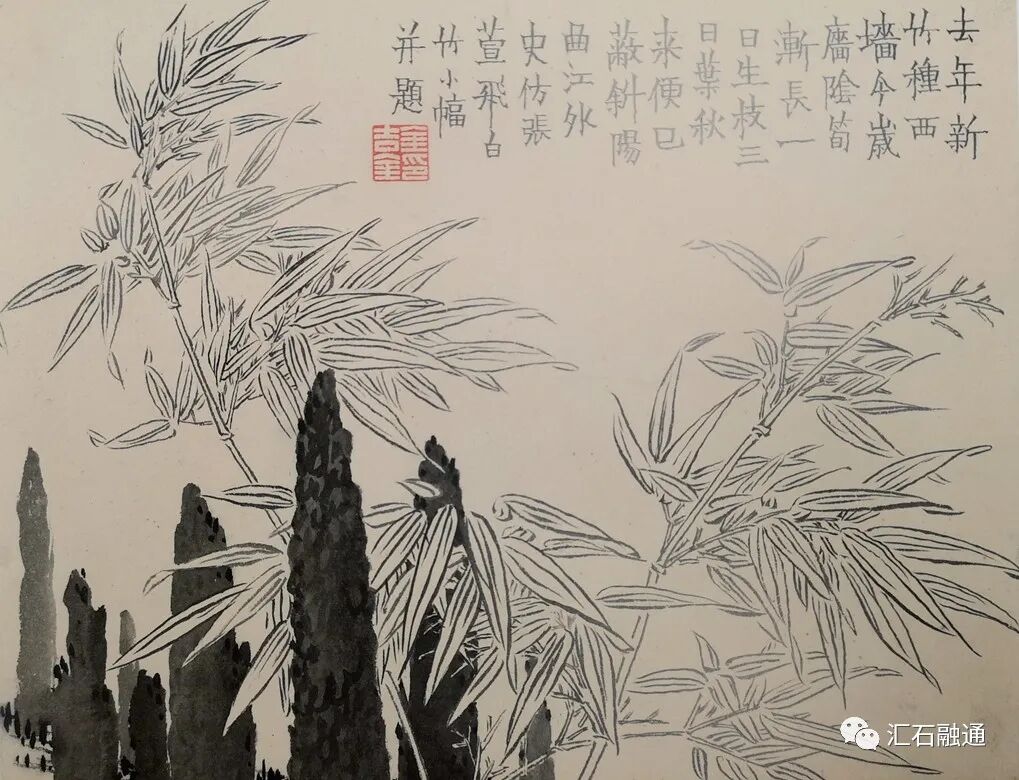 去年新
竹種西
墻今歲
廧陰筍
漸長一
日生枝三
日葉秋
来便已
蔽斜陽
曲江外
史仿張
萱飛白
竹小幅
并題
金吉金印
汇石融通